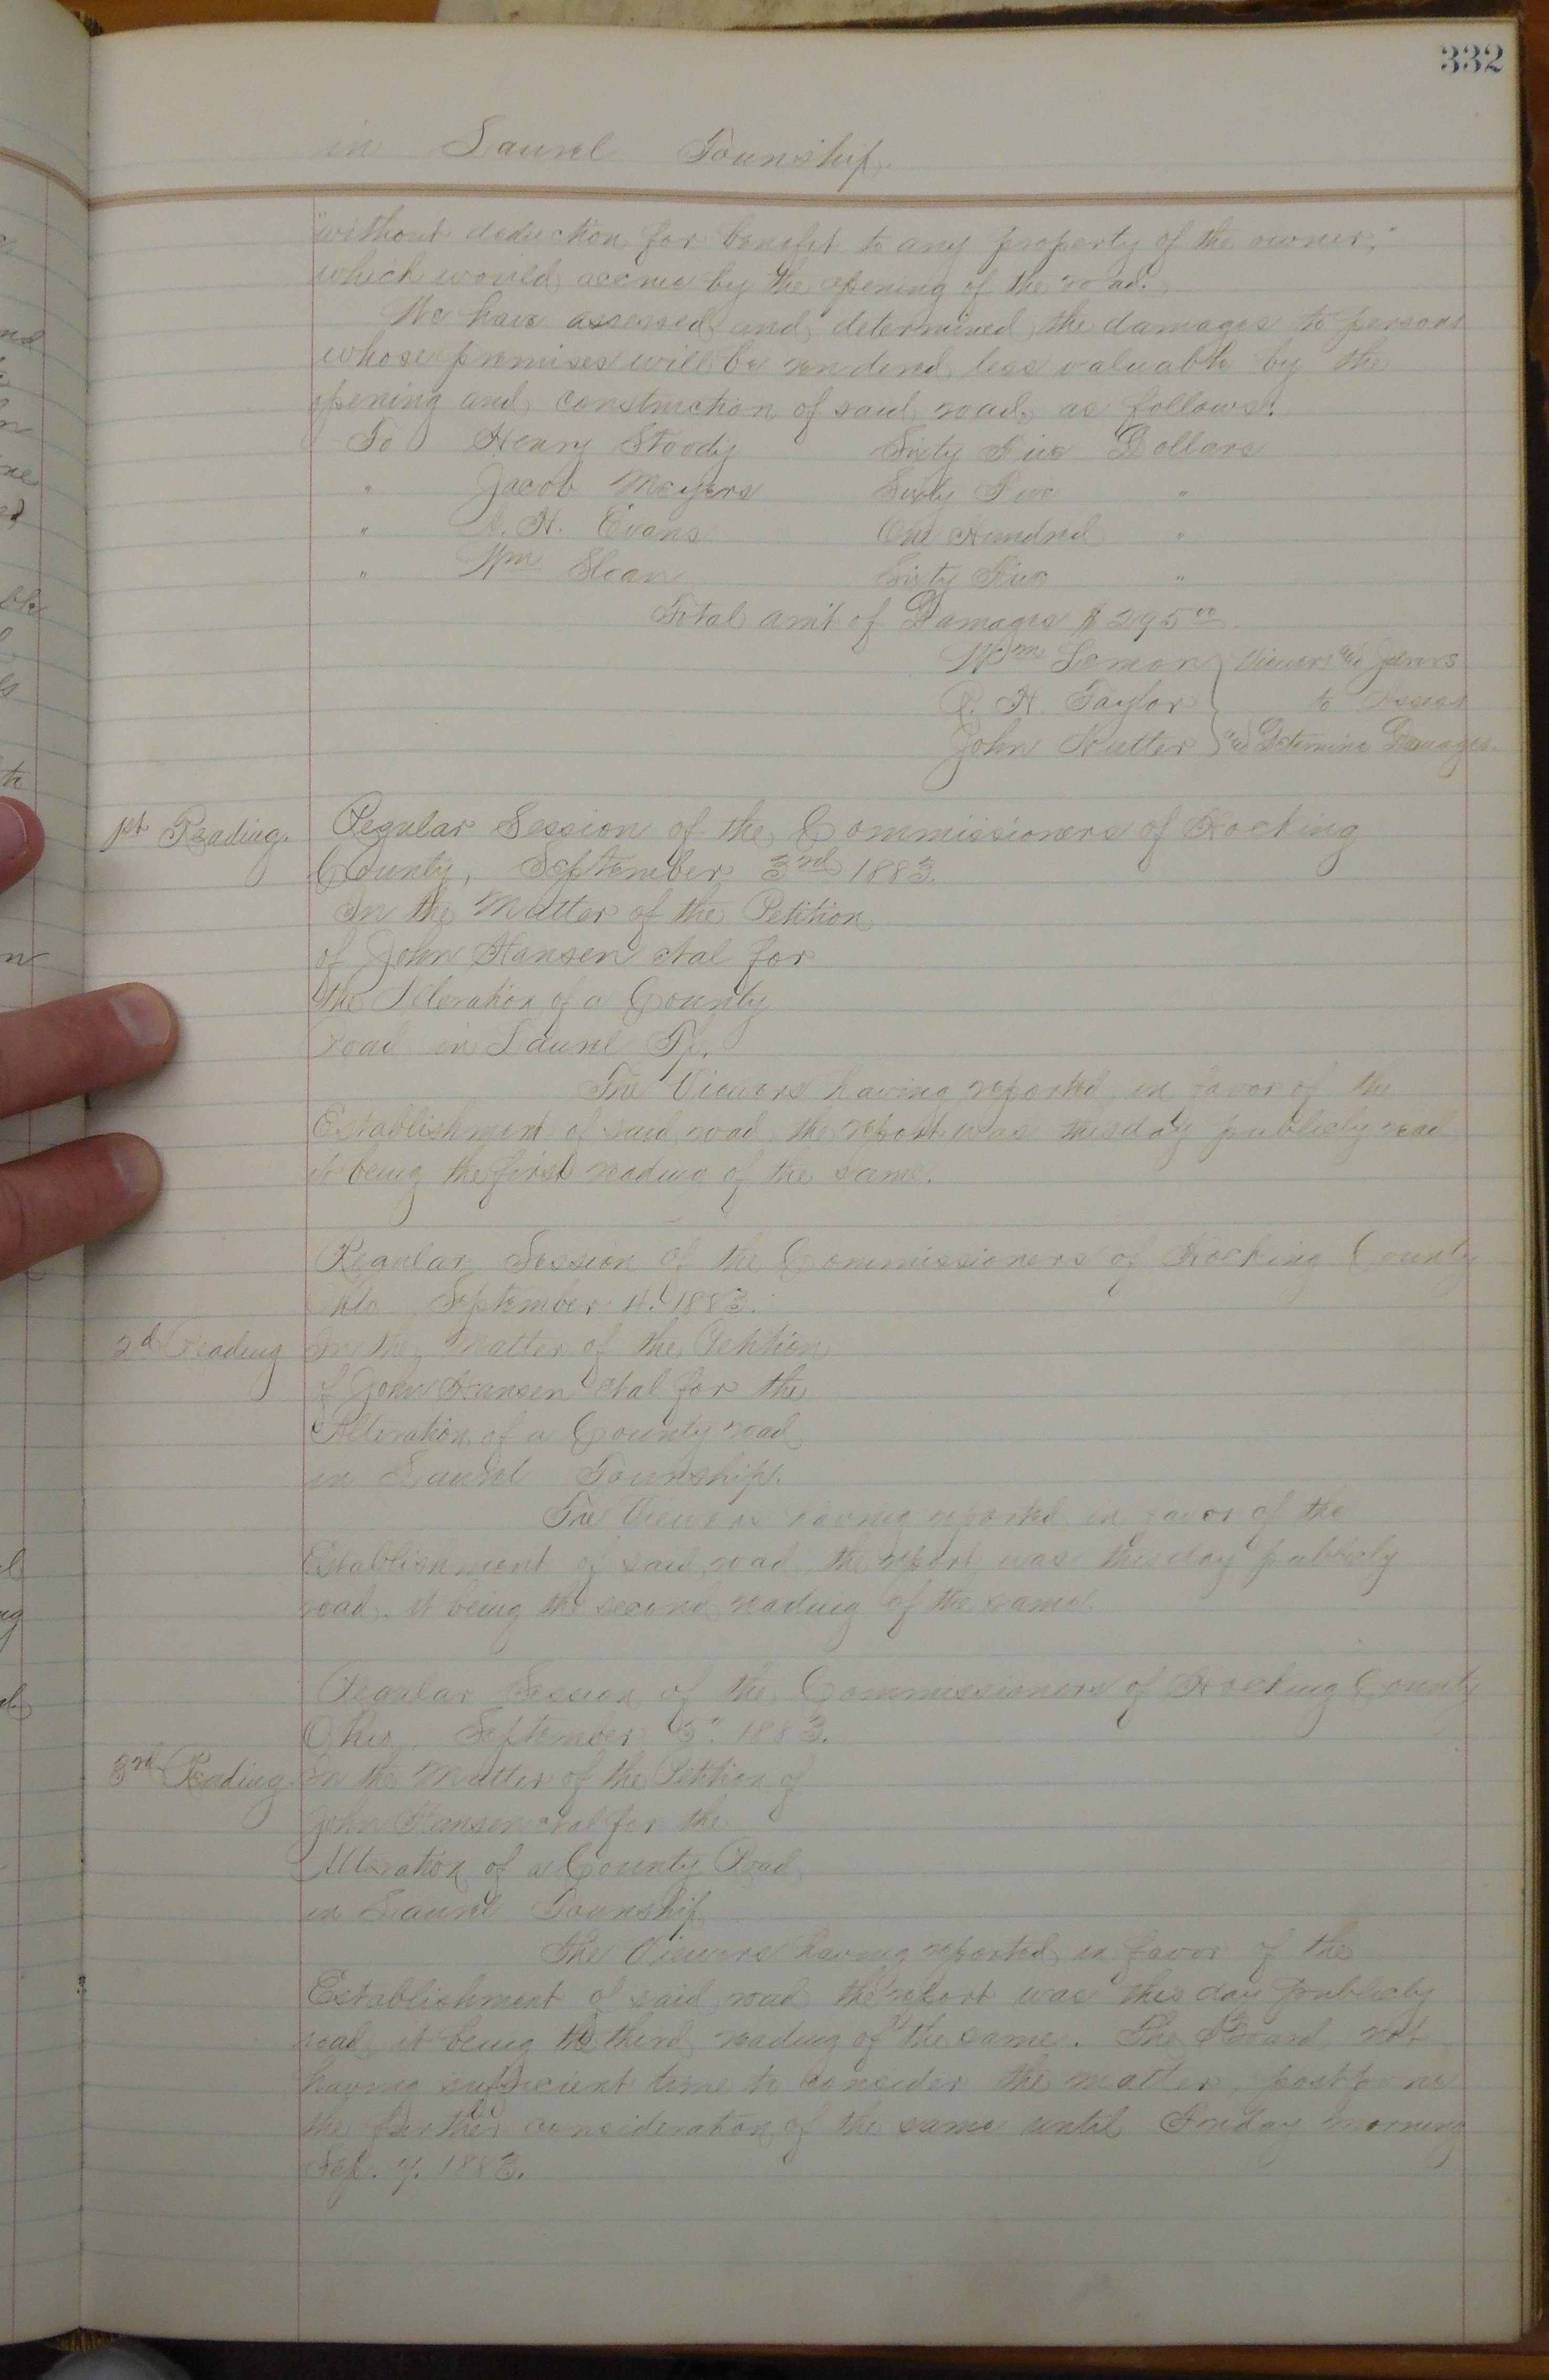 332
in Laurel Township.
"without deduction for benefit to any property of the owner,"
which would accrue by the opening of the road.
We have assessed and determined the damages to persons
whose premises will be rendered less valuable by the
opening and construction of said road, as follows:
To Henry Stoody Sixty Five Dollars
" Jacob Meyers Sixty Five "
" H. Evans One Hundred "
" Wm Sloan Sixty Five "
Total am't of Damages $295.00
Wm Lemon Viewers and Jurors
R. H. Taylor to Assess
John Nutter and Determine Damages.
1st Reading. Regular Session of the Commissioners of Hocking
County, September 3rd 1883.
In the Matter of the Petition
of John Hansen et al for
the Alteration of a County
Road in Laurel Tp.
The Viewers having reported in favor of the
Establishment of said road, the report was this day publicly read
it being the first reading of the same.
Regular Session of the Commissioners of Hocking County
Ohio September 4. 1883.
2d Reading In the Matter of the Petition
of John Hansen et al for the
Alteration of a County road
in Laurel Township.
The Viewers having reported in favor of the
Establishment of said road, the report was this day publicly
read, it being the second reading of the same.
Regular Session of the Commissioners of Hocking County
Ohio, September 5" 1883.
3rd Reading. In the Matter of the Petition of
John Hansen et al for the
Alteration of a County Road
in Laurel Township
The Viewers having reported in favor of the
Establishment of said road the report was this day publicly
read, it being the third reading of the same. The Board not
having sufficient time to consider the matter, postpone
the further consideration of the same until Friday morning
Sep. 7. 1883.